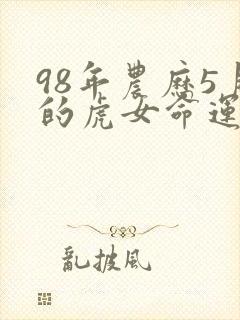 98年農曆5月
的虎女命運
亂披風